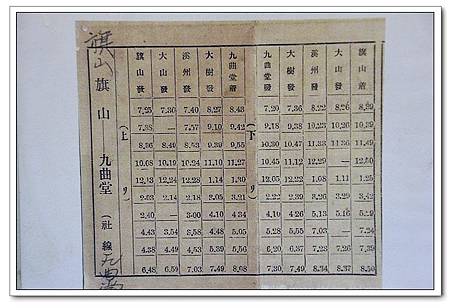 旗山
旗山 — 九曲堂 (社線)
(上り) (下り)
旗山發 大山發 溪州發 大樹發 九曲堂着 九曲堂發 大樹發 溪州發 大山發 旗山着
7.25 7.30 7.40 8.27 8.43 7.20 7.36 8.22 8.26 8.39
7.38 — 7.57 9.10 9.42 9.18 9.38 10.23 10.26 10.39
8.36 8.49 8.53 9.39 9.55 10.30 10.47 11.33 11.36 11.49
10.08 10.19 10.24 11.10 11.27 10.45 11.12 12.29 — 12.50
12.13 12.24 12.28 1.14 1.30 12.05 12.22 1.08 1.11 1.25
2.03 2.14 2.18 3.05 3.21 2.22 2.39 3.26 3.29 3.42
2.40 — 3.00 4.10 4.34 4.10 4.26 5.13 5.16 5.29
4.43 3.54 3.58 4.48 5.05 5.28 5.55 7.03 — 7.24
4.38 4.49 4.53 5.39 5.56 6.20 6.37 7.23 7.26 7.39
6.48 6.59 7.03 7.49 8.08 7.30 7.49 8.34 8.37 8.50